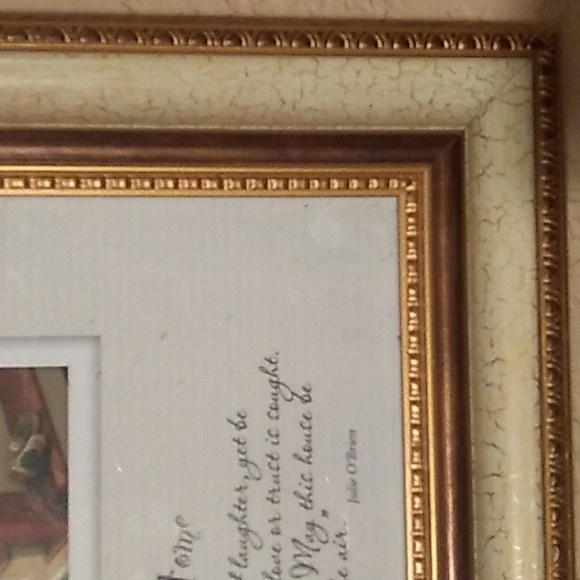 ome
laughter, yet be
love or trust is caught.
May this house be
e air.
Julie O'Brien